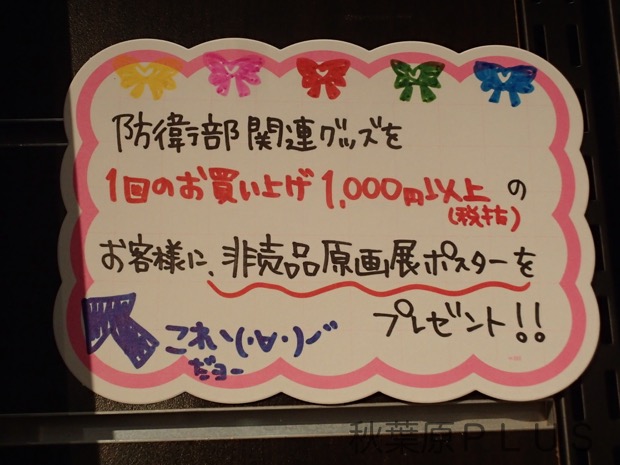 防衛部関連グッズを
1回のお買い上げ1,000円以上の
(税抜)
お客様に、非売品原画展ポスターを
プレゼント!!
これい(・∀・)ノ゛
だヨー
秋葉原PLUS